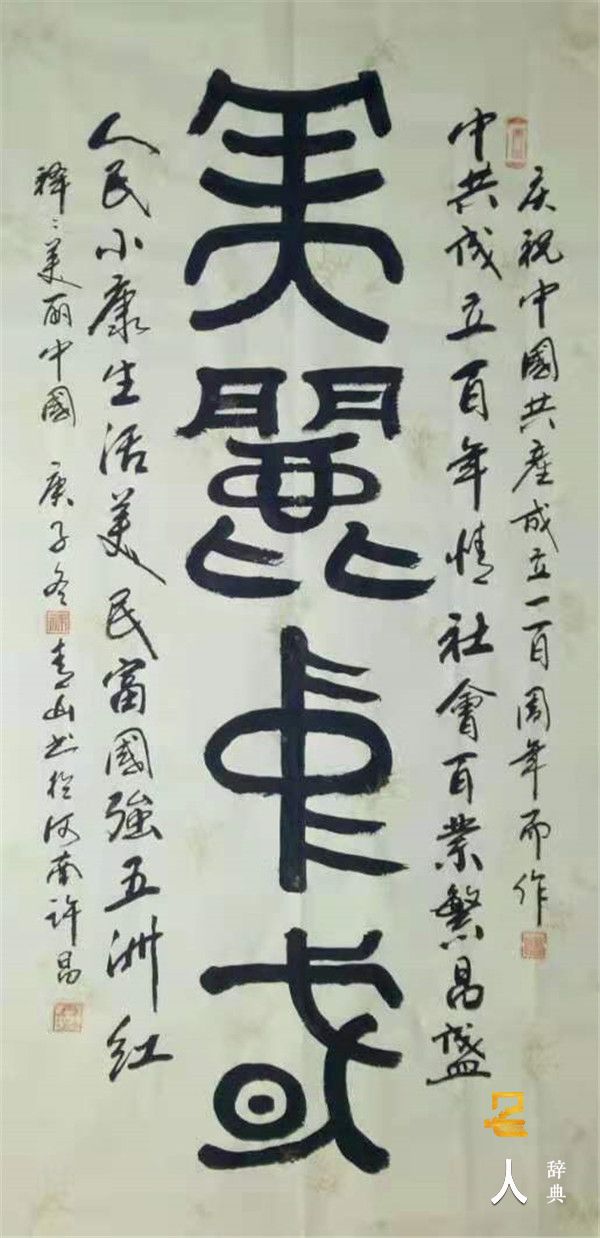 庆祝中國共產成立一百周年而作
中共成立百年情社會百業繁昌盛
美麗中或
人民小康生活美民富國強五洲红
释:美丽中國 庚子冬 青山书於河南许昌
人
辞典